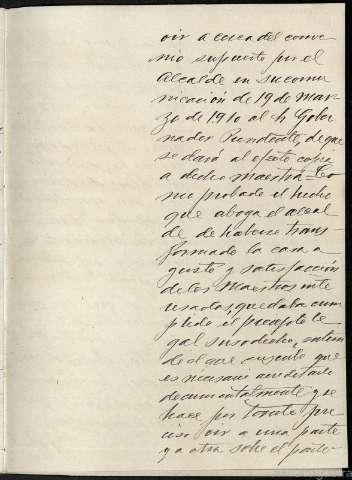 oir acerca del conve
nio supuesto por el
Alcalde en su comu
nicación de 19 de Mar
zo de 1910 al Sr Gober
nador Presidente, de que
se dará al efecto copia
a dicha maestra. Co
mo probado el hecho
que aboga el alcal
de de haberse trans-
formado la casa a
gusto y satisfacción
de los Maestros inte
resados, quedaba cum
plido el precepto le
gal susodicho, entien
de el que suscribe que
es necesario acreditarlo
documentalmente y se
hace por tanto pre
ciso oir a una parte
y a otra sobre el parte-